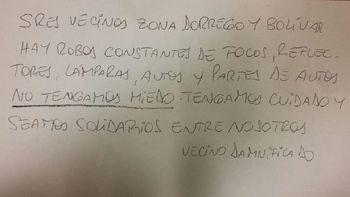 SRES VECINOS ZONA DORREGO Y BOLÍVAR
HAY ROBOS CONSTANTES DE FOCOS, REFLEC-
TORES, LAMPARAS, AUTOS Y PARTES DE AUTOS
NO TENGAMOS MIEDO. TENGAMOS CUIDADO Y
SEAMOS SOLIDARIOS ENTRE NOSOTROS
VECINO DAMNIFICADO